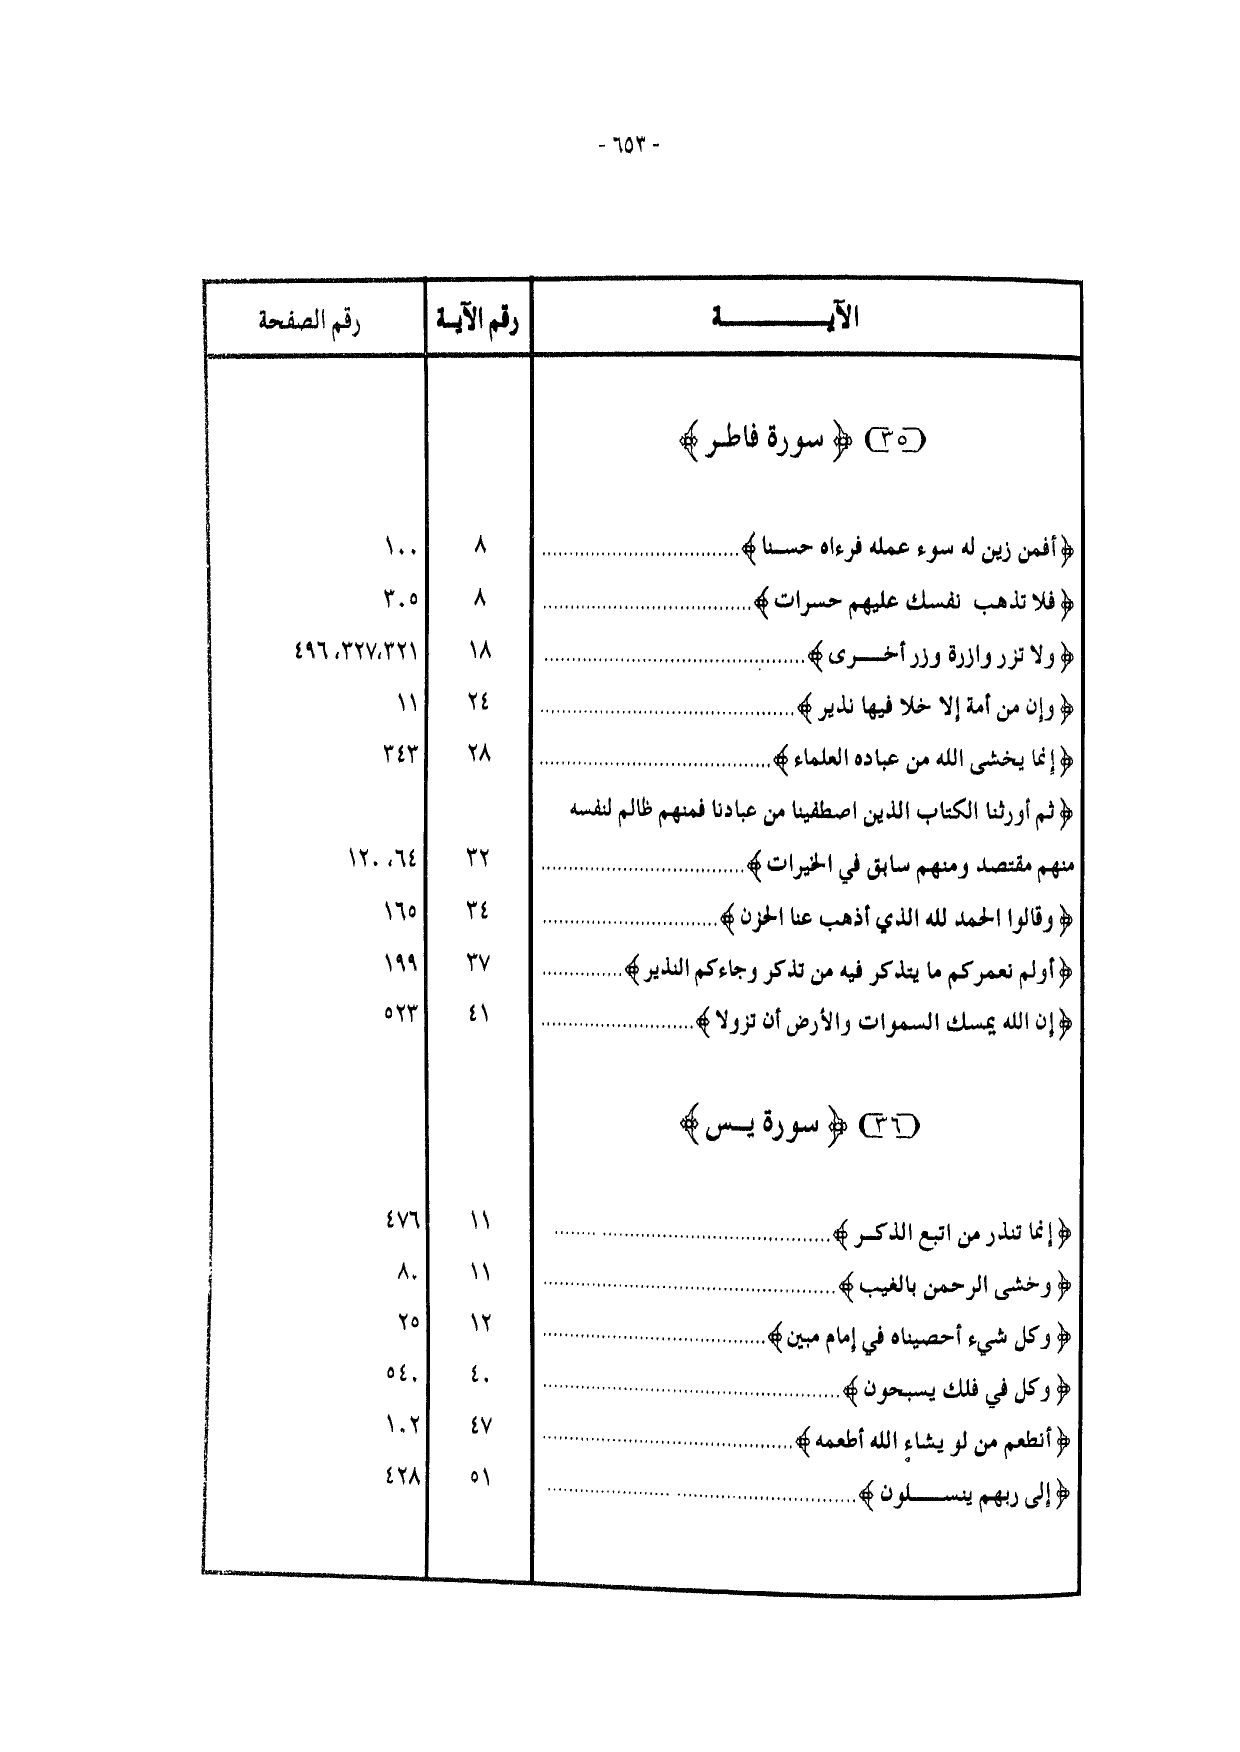 - ٦٥٣ -
الآيـــــــة رقم الآيـة رقم الصفحة
(٣٥) ﴿ سورة فاطر ﴾
﴿ أفمن زين له سوء عمله فرءاه حسنا ﴾ ٨ ١٠٠
﴿ فلا تذهب نفسك عليهم حسرات ﴾ ٨ ٣٠٥
﴿ ولا تزر وازرة وزر أخـــرى ﴾ ١٨ ٣٢١،٣٢٧، ٤٩٦
﴿ وإن من أمة إلا خلا فيها نذير ﴾ ٢٤ ١١
﴿ إنما يخشى الله من عباده العلماء ﴾ ٢٨ ٣٤٣
﴿ ثم أورثنا الكتاب الذين اصطفينا من عبادنا فمنهم ظالم لنفسه
منهم مقتصد ومنهم سابق في الخيرات ﴾ ٣٢ ٦٤، ١٢٠
﴿ وقالوا الحمد لله الذي أذهب عنا الحزن ﴾ ٣٤ ١٦٥
﴿ أولم نعمركم ما يتذكر فيه من تذكر وجاءكم النذير ﴾ ٣٧ ١٩٩
﴿ إن الله يمسك السموات والأرض أن تزولا ﴾ ٤١ ٥٢٣
(٣٦) ﴿ سورة يـس ﴾
﴿ إنما تنذر من اتبع الذكـر ﴾ ١١ ٤٧٦
﴿ وخشى الرحمن بالغيب ﴾ ١١ ٨٠
﴿ وكل شيء أحصيناه في إمام مبين ﴾ ١٢ ٢٥
﴿ وكل في فلك يسبحون ﴾ ٤٠ ٥٤٠
﴿ أنطعم من لو يشاء الله أطعمه ﴾ ٤٧ ١٠٢
﴿ إلى ربهم ينســـلون ﴾ ٥١ ٤٢٨